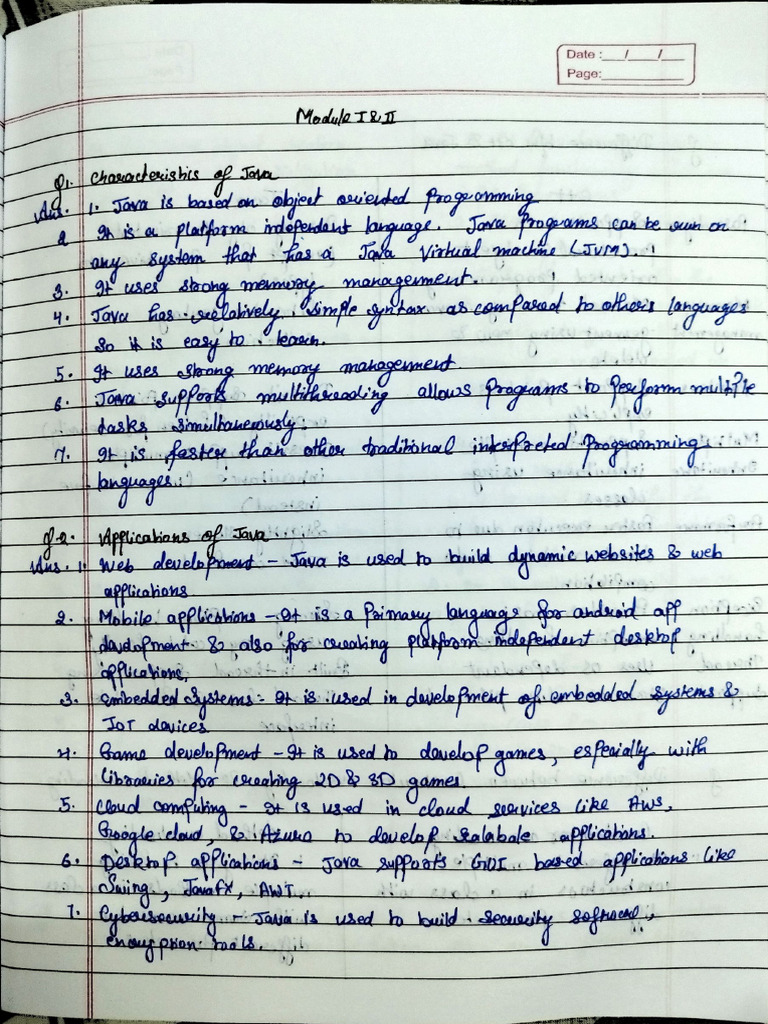 Date : __/__/__
Page: ______
Module I & II
Q1. Characteristics of Java
Ans. 1. Java is based on object oriented Programming
2 It is a platform independant language. Java Programs can be run on
any system that has a Java Virtual machine (JVM).
3. It uses strong memory management.
4. Java has relatively simple syntax as compared to others languages
so it is easy to learn.
5. It uses strong memory management
6. Java supports multithreading allows Programs to Perform multiple
tasks simultaneously.
7. It is faster than other traditional interpreted Programming
languages.
Q-2. Applications of Java
Ans. 1. Web development - Java is used to build dynamic websites & web
applications
2. Mobile applications - It is a Primary language for android app
development & also for creating platform independent desktop
applications,
3. Embedded systems - It is used in development of embedded systems &
IoT devices
4. Game development - It is used to develop games, especially with
libraries for creating 2D & 3D games.
5. Cloud computing - It is used in cloud services like AWS,
Google cloud, & Azure to develop scalable applications.
6. Desktop applications - Java supports GUI based applications like
Swing, JavaFX, AWT.
7. Cybersecurity - Java is used to build security software,
encryption tools.